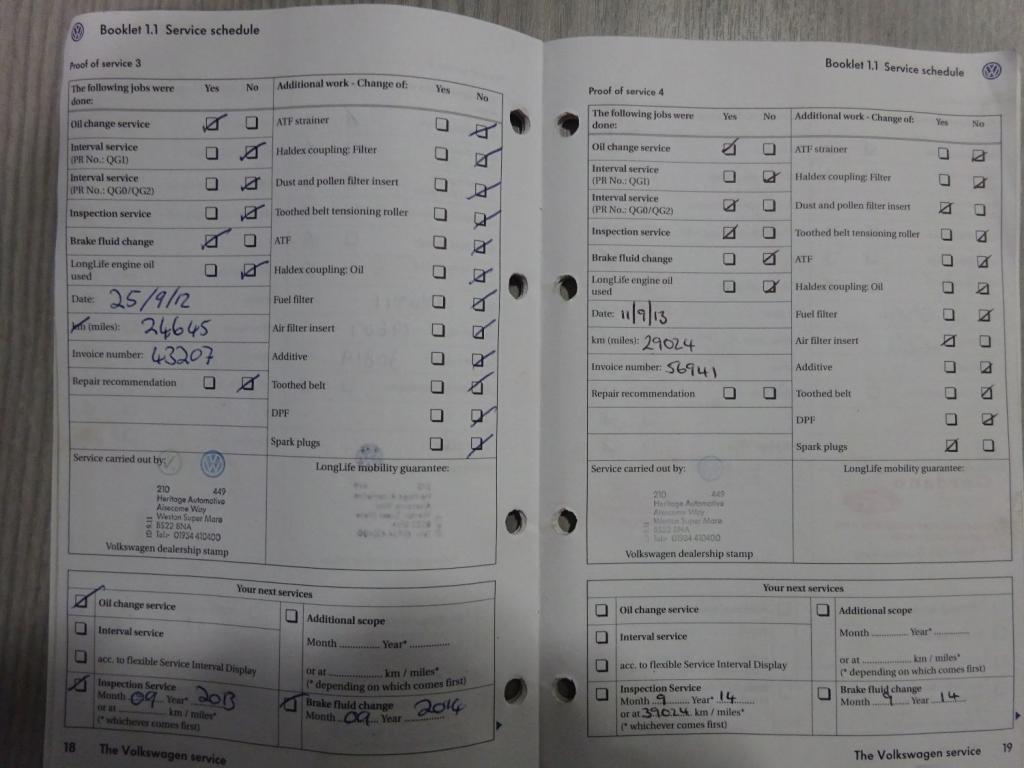 Booklet 1.1 Service schedule
Proof of service 3
The following jobs were done: Yes No
Oil change service
Interval service
(PR No.: QG1)
Interval service
(PR No.: QG0/QG2)
Inspection service
Brake fluid change
LongLife engine oil
used
Date: 25/9/12
km (miles): 24645
Invoice number: 43207
Repair recommendation
Additional work - Change of: Yes No
ATF strainer
Haldex coupling: Filter
Dust and pollen filter insert
Toothed belt tensioning roller
ATF
Haldex coupling: Oil
Fuel filter
Air filter insert
Additive
Toothed belt
DPF
Spark plugs
Service carried out by:
210 449
Heritage Automotive
Aisecome Way
Weston Super Mare
BS22 8NA
Tel:- 01934 410400
Volkswagen dealership stamp
LongLife mobility guarantee:
Your next services
Oil change service
Interval service
acc. to flexible Service Interval Display
Inspection Service
Month 09 Year* 2013
or at km / miles*
(* whichever comes first)
Additional scope
Month Year*
or at km / miles*
(* depending on which comes first)
Brake fluid change
Month 09 Year 2014
18 The Volkswagen service
Booklet 1.1 Service schedule
Proof of service 4
The following jobs were
done: Yes No
Oil change service
Interval service
(PR No.: QG1)
Interval service
(PR No.: QG0/QG2)
Inspection service
Brake fluid change
LongLife engine oil
used
Date: 11/9/13
km (miles): 29024
Invoice number: 56941
Repair recommendation
Additional work - Change of: Yes No
ATF strainer
Haldex coupling: Filter
Dust and pollen filter insert
Toothed belt tensioning roller
ATF
Haldex coupling: Oil
Fuel filter
Air filter insert
Additive
Toothed belt
DPF
Spark plugs
Service carried out by:
210 449
Heritage Automotive
Aisecome Way
Weston Super Mare
BS22 8NA
Tel:- 01934 410400
Volkswagen dealership stamp
LongLife mobility guarantee:
Your next services
Oil change service
Interval service
acc. to flexible Service Interval Display
Inspection Service
Month 9 Year* 14
or at 39024 km / miles*
(* whichever comes first)
Additional scope
Month Year*
or at km / miles*
(* depending on which comes first)
Brake fluid change
Month 9 Year 14
The Volkswagen service 19